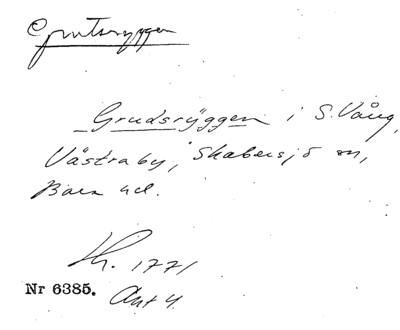 Grutsryggen
Grudsrÿggen i S. Vång,
Västraby, Skabersjö sn,
Bara hd.
Kh. 1771
Nr 6385. Akt 4.